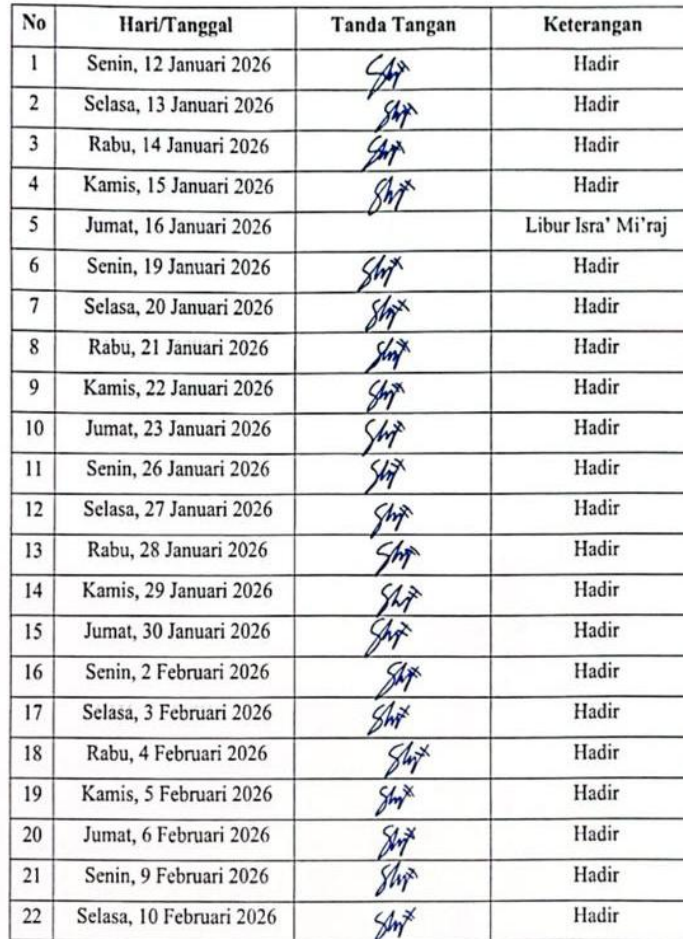 No Hari/Tanggal Tanda Tangan Keterangan
1 Senin, 12 Januari 2026 Hadir
2 Selasa, 13 Januari 2026 Hadir
3 Rabu, 14 Januari 2026 Hadir
4 Kamis, 15 Januari 2026 Hadir
5 Jumat, 16 Januari 2026 Libur Isra’ Mi’raj
6 Senin, 19 Januari 2026 Hadir
7 Selasa, 20 Januari 2026 Hadir
8 Rabu, 21 Januari 2026 Hadir
9 Kamis, 22 Januari 2026 Hadir
10 Jumat, 23 Januari 2026 Hadir
11 Senin, 26 Januari 2026 Hadir
12 Selasa, 27 Januari 2026 Hadir
13 Rabu, 28 Januari 2026 Hadir
14 Kamis, 29 Januari 2026 Hadir
15 Jumat, 30 Januari 2026 Hadir
16 Senin, 2 Februari 2026 Hadir
17 Selasa, 3 Februari 2026 Hadir
18 Rabu, 4 Februari 2026 Hadir
19 Kamis, 5 Februari 2026 Hadir
20 Jumat, 6 Februari 2026 Hadir
21 Senin, 9 Februari 2026 Hadir
22 Selasa, 10 Februari 2026 Hadir